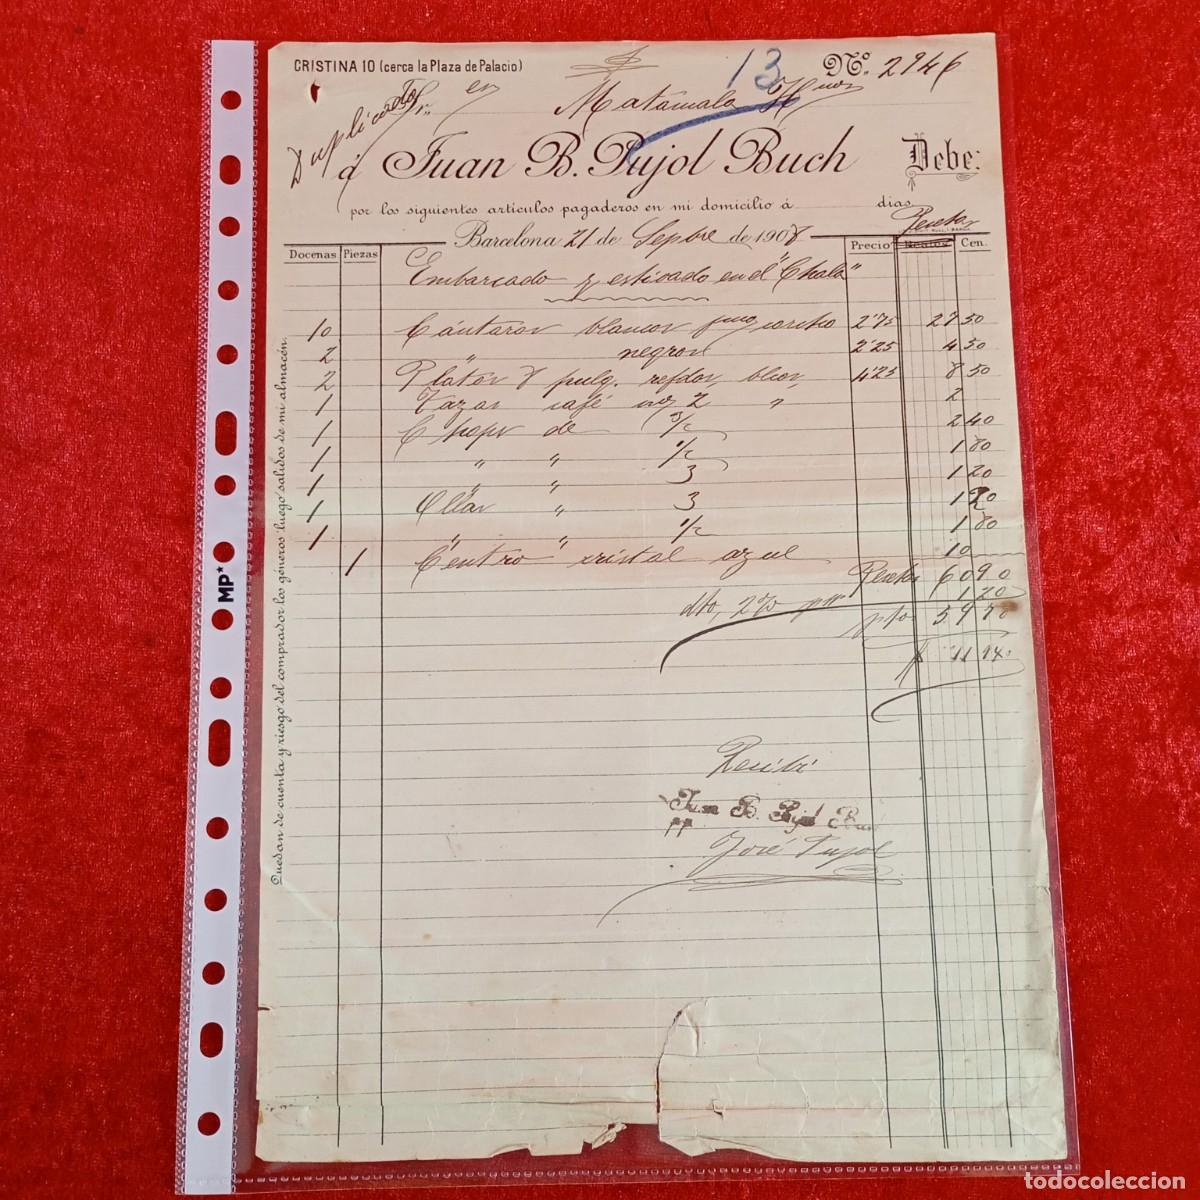 CRISTINA 10 (cerca la Plaza de Palacio)
13
Nº. 2946
Duplicado
Sr. en Matamala Hnos
á Juan B. Pujol Buch Debe:
por los siguientes artículos pagaderos en mi domicilio á días
Pesetas
Barcelona 21 de Sepbre de 1908
Docenas Piezas Precio Reales Cen.
Embarcado y estivado en el "Chala"
10 Cántaros blancos 2'75 27 50
2 " negros 2'25 4 50
2 Platos 8 pulg. 4'25 8 50
1 Tazas café 2 " 2
1 Chops de 3/2 2 40
1 " " 1/2 1 80
1 " " 3 1 20
1 Ollas " 3 1 20
1 " " 1/2 1 80
1 Centro cristal azul 10
Pesetas 60 90
dto, 2% 1 20
ptas 59 70
$ 11 94
Recibí
Juan B. Pujol Buch
pp.
José Pujol
Quedan de cuenta y riesgo del comprador los géneros luego salidos de mi almacén.
MP*
todocoleccion